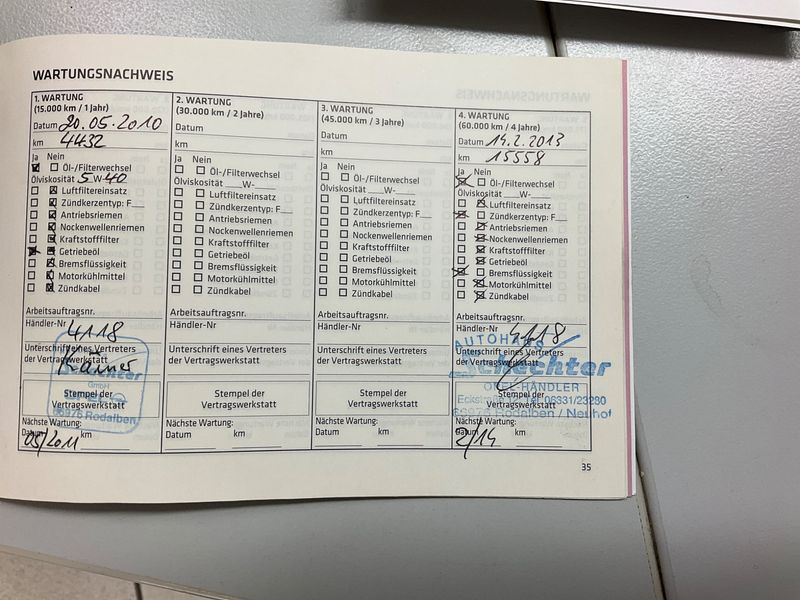 WARTUNGSNACHWEIS
1. WARTUNG
(15.000 km / 1 Jahr)
Datum 20.05.2010
km 4432
Ja Nein
Öl-/Filterwechsel
Ölviskosität 5 W- 40
Luftfiltereinsatz
Zündkerzentyp: F
Antriebsriemen
Nockenwellenriemen
Kraftstofffilter
Getriebeöl
Bremsflüssigkeit
Motorkühlmittel
Zündkabel
Arbeitsauftragsnr.
Händler-Nr 4118
Unterschrift eines Vertreters
der Vertragswerkstatt
GmbH
Stempel der
Vertragswerkstatt
66976 Rodalben
Nächste Wartung:
Datum km
05/2011
2. WARTUNG
(30.000 km / 2 Jahre)
Datum
km
Ja Nein
Öl-/Filterwechsel
Ölviskosität W-
Luftfiltereinsatz
Zündkerzentyp: F
Antriebsriemen
Nockenwellenriemen
Kraftstofffilter
Getriebeöl
Bremsflüssigkeit
Motorkühlmittel
Zündkabel
Arbeitsauftragsnr.
Händler-Nr
Unterschrift eines Vertreters
der Vertragswerkstatt
Stempel der
Vertragswerkstatt
Nächste Wartung:
Datum km
3. WARTUNG
(45.000 km / 3 Jahre)
Datum
km
Ja Nein
Öl-/Filterwechsel
Ölviskosität W-
Luftfiltereinsatz
Zündkerzentyp: F
Antriebsriemen
Nockenwellenriemen
Kraftstofffilter
Getriebeöl
Bremsflüssigkeit
Motorkühlmittel
Zündkabel
Arbeitsauftragsnr.
Händler-Nr
Unterschrift eines Vertreters
der Vertragswerkstatt
Stempel der
Vertragswerkstatt
Nächste Wartung:
Datum km
4. WARTUNG
(60.000 km / 4 Jahre)
Datum 14.2.2013
km 15558
Ja Nein
Öl-/Filterwechsel
Ölviskosität W-
Luftfiltereinsatz
Zündkerzentyp: F
Antriebsriemen
Nockenwellenriemen
Kraftstofffilter
Getriebeöl
Bremsflüssigkeit
Motorkühlmittel
Zündkabel
Arbeitsauftragsnr.
Händler-Nr 4118
AUTOHAUS
Unterschrift eines Vertreters
der Vertragswerkstatt
Schächter
OPEL-HÄNDLER
Stempel der
Vertragswerkstatt
Tel. 06331/23280
66976 Rodalben / Neuhof
Nächste Wartung:
Datum km
2/14
35